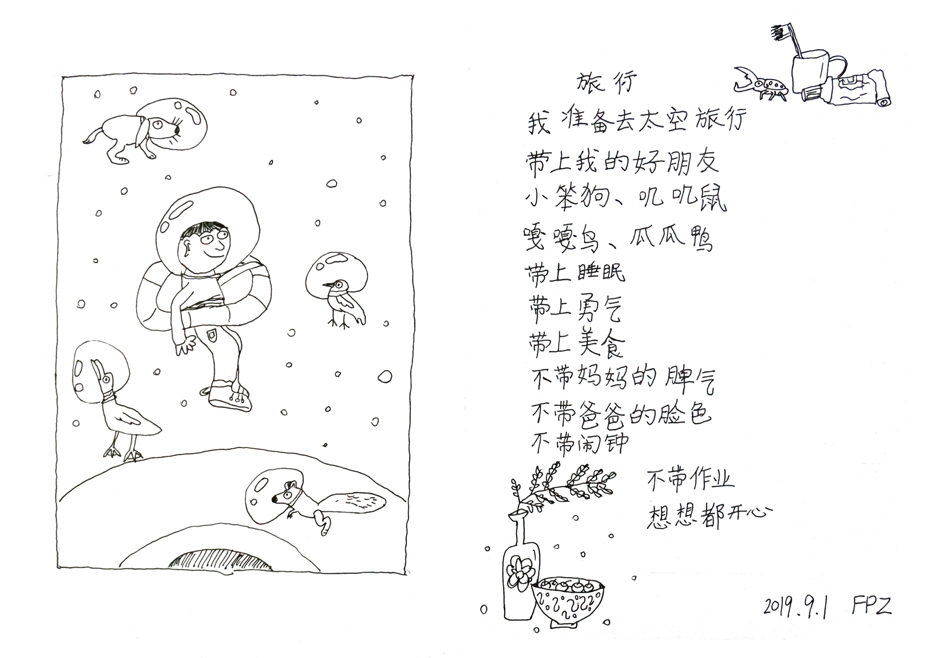 旅行
我准备去太空旅行
带上我的好朋友
小笨狗、叽叽鼠
嘎嘎鸟、瓜瓜鸭
带上睡眠
带上勇气
带上美食
不带妈妈的脾气
不带爸爸的脸色
不带闹钟
不带作业
想想都开心
2019.9.1 FPZ